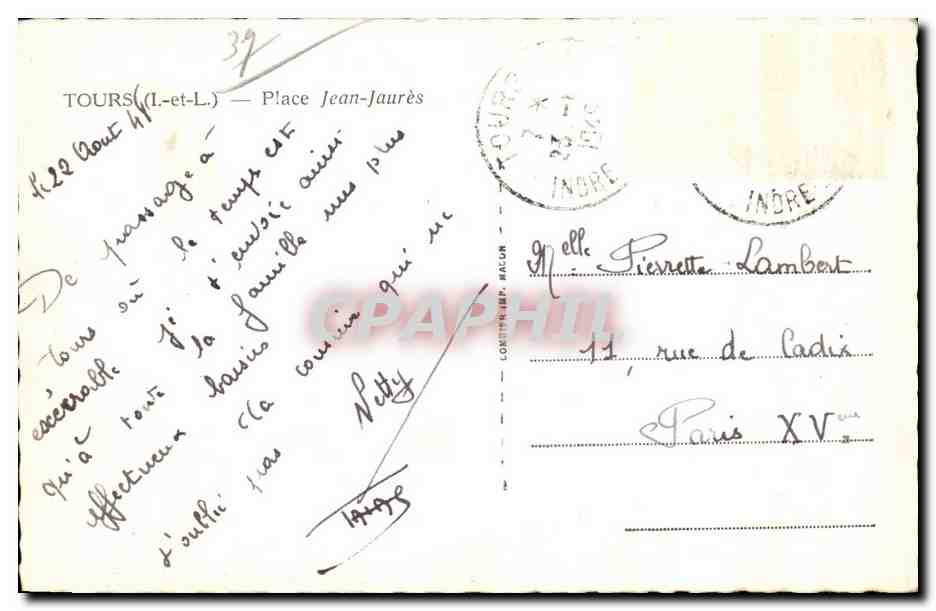 39
TOURS (I.-et-L.) — Place Jean-Jaurès
le 22 Aout 48
De passage à
Tours où le temps est
exécrable je t'envoie ainsi
qu'à toute la famille mes plus
affectueux baisers
Ta cousine qui ne
t'oublie pas
Netty
TOURS
* 23 -
INDRE
INDRE
COMBIER IMP. MACON
Melle Pierrette Lambert
11, rue de Cadix
Paris XVeme
CPAPHIL